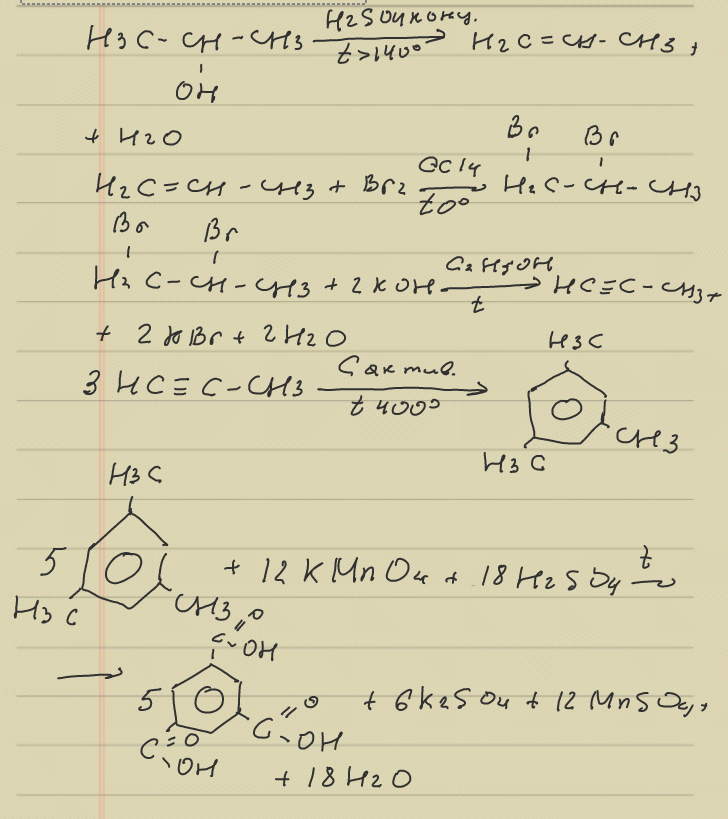 H3C - CH - CH3 H2SO4 конц. t>140° H2C = CH - CH3 +
OH
+ H2O
H2C = CH - CH3 + Br2 CCl4 t0° H2C - CH - CH3
Br Br
Br Br
H2C - CH - CH3 + 2 KOH C2H5OH t HC ≡ C - CH3 +
+ 2 KBr + 2H2O
3 HC ≡ C - CH3 C актив. t 400°
H3C
CH3
H3C
H3C
5 + 12 KMnO4 + 18 H2SO4 t
H3C CH3
C = O
- OH
5 + 6 K2SO4 + 12 MnSO4 +
C = O
- OH
C = O
OH
+ 18H2O